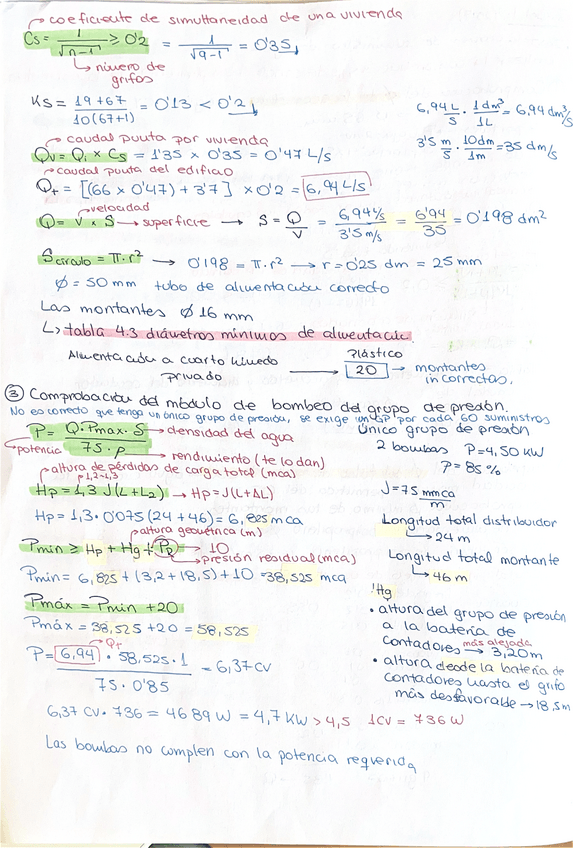 coeficiente de simultaneidad de una vivienda
Cs = 1/√n-1 ≥ 0'2 = 1/√9-1 = 0'35
número de grifos
Ks = 19+67/10(67+1) = 0'13 < 0'2
6,94 L/s · 1dm³/1L = 6,94 dm³/s
3'5 m/s · 10dm/1m = 35 dm/s
caudal punta por vivienda
Qv = Qi x Cs = 1'35 x 0'35 = 0'47 L/s
caudal punta del edificio
Qt = [(66 x 0'47) + 3'7] x 0'2 = 6,94 L/s
velocidad
Q = V x S → superficie → S = Q/V = 6,94 L/s/3'5 m/s = 6'94/35 = 0'198 dm²
Scírculo = π·r² → 0'198 = π·r² → r = 0'25 dm = 25 mm
Ø = 50 mm tubo de alimentación correcto
Las montantes Ø 16 mm
↳ tabla 4.3 diámetros mínimos de alimentación.
Alimentación a cuarto húmedo privado → Plástico 20 → montantes incorrectas.
③ Comprobación del módulo de bombeo del grupo de presión.
No es correcto que tenga un único grupo de presión, se exige un GP por cada 60 suministros
P = Q·Pmax·S/75·ρ → densidad del agua
potencia
rendimiento (te lo dan)
Único grupo de presión
2 bombas P = 4,50 KW
ρ = 85 %
altura de pérdidas de carga total (mca)
1,2-1,3
Hp = 1,3 J (L + L2) → Hp = J(L+ΔL)
J = 75 mmca/m
Hp = 1,3 · 0'075 (24 + 46) = 6,825 mca
Longitud total distribuidor
↳ 24 m
altura geométrica (m)
Pmin ≥ Hp + Hg + PR → 10
presión residual (mca)
Longitud total montante
↳ 46 m
Pmin = 6,825 + (3,2 + 18,5) + 10 = 38,525 mca
Pmáx = Pmin + 20
Pmáx = 38,525 + 20 = 58,525
!Hg
• altura del grupo de presión a la batería de contadores más alejada → 3,20 m
• altura desde la batería de contadores hasta el grifo más desfavorable → 18,5m
Qt
P = 6,94 · 58,525 · 1/75 · 0'85 = 6,37 CV
6,37 CV · 736 = 4689 W = 4,7 KW > 4,5 1CV = 736 W
Las bombas no cumplen con la potencia requerida